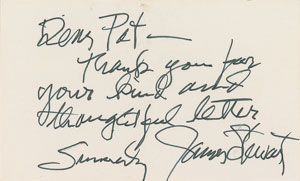 Dear Pat —
Thank you for
your kind and
thoughtful letter
Sincerely James Stewart